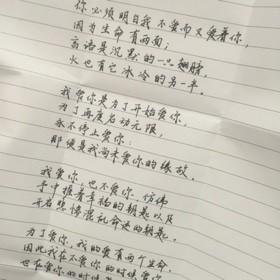 你必须明白我不爱而又爱着你，
因为生命有两面；
言语是沉默的一只翅膀，
火也有它冰冷的另一半。
我爱你是为了开始爱你，
为了再度启动无限，
永不停止爱你：
那便是我尚未爱你的缘故。
我爱你，也不爱你，仿佛
手中握着幸福的钥匙以及
开启悲惨混乱命运的钥匙。
为了爱你，我的爱有两个生命
因此我在不爱你的时候爱你
也在爱你的时候